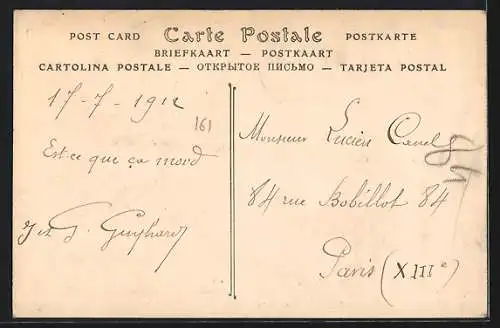 POST CARD Carte Postale POSTKARTE
BRIEFKAART — POSTKAART
CARTOLINA POSTALE — ОТКРЫТОЕ ПИСЬМО — TARJETA POSTAL
17-7-1912
161
Est ce que ça mord
J et G. Guyhard
Monsieur Lucien Canel
84 rue Bobillot 84
Paris (XIIIe)